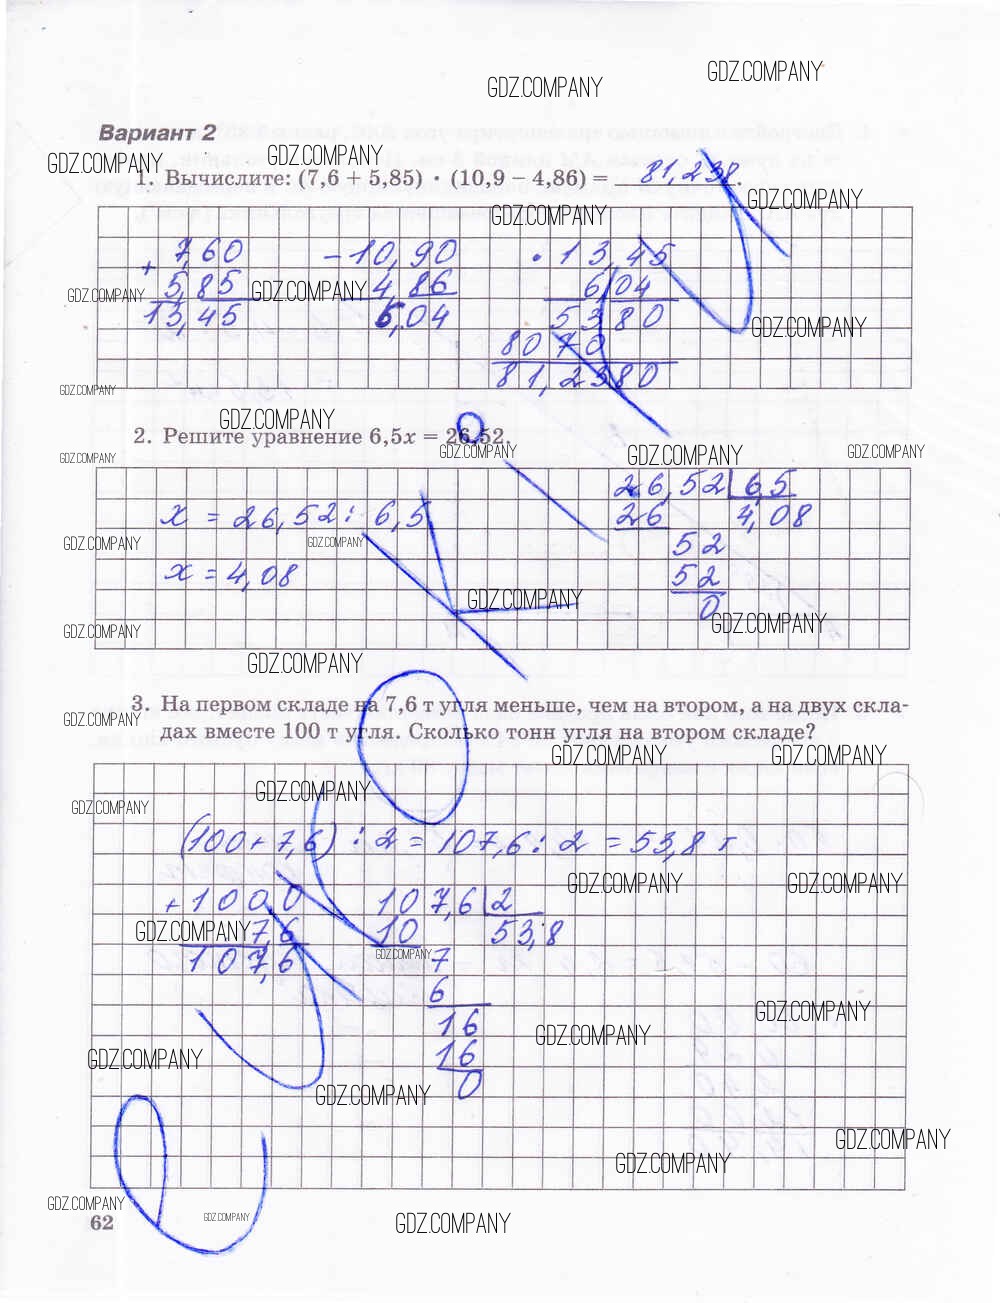 GDZ.COMPANY
GDZ.COMPANY
Вариант 2
GDZ.COMPANY
GDZ.COMPANY
1. Вычислите: (7,6 + 5,85) · (10,9 – 4,86) = 81,238.
GDZ.COMPANY
GDZ.COMPANY
+ 7,60 – 10,90 · 13,45
5,85 4,86 6,04
GDZ.COMPANY GDZ.COMPANY
13,45 6,04 5380
GDZ.COMPANY
8070
81,2380
GDZ.COMPANY
GDZ.COMPANY
2. Решите уравнение 6,5x = 26,52.
GDZ.COMPANY GDZ.COMPANY GDZ.COMPANY GDZ.COMPANY
26,52 6,5
x = 26,52 : 6,5 26 4,08
GDZ.COMPANY GDZ.COMPANY
52
x = 4,08 52
GDZ.COMPANY
0
GDZ.COMPANY GDZ.COMPANY
GDZ.COMPANY
3. На первом складе на 7,6 т угля меньше, чем на втором, а на двух скла-
GDZ.COMPANY
дах вместе 100 т угля. Сколько тонн угля на втором складе?
GDZ.COMPANY GDZ.COMPANY
GDZ.COMPANY
GDZ.COMPANY
(100 + 7,6) : 2 = 107,6 : 2 = 53,8 т
GDZ.COMPANY GDZ.COMPANY
+ 100,0 107,6 2
7,6 10 53,8
GDZ.COMPANY
GDZ.COMPANY
107,6 7
6
GDZ.COMPANY
16
GDZ.COMPANY
16
GDZ.COMPANY
0
GDZ.COMPANY
GDZ.COMPANY
GDZ.COMPANY
GDZ.COMPANY
62
GDZ.COMPANY
GDZ.COMPANY